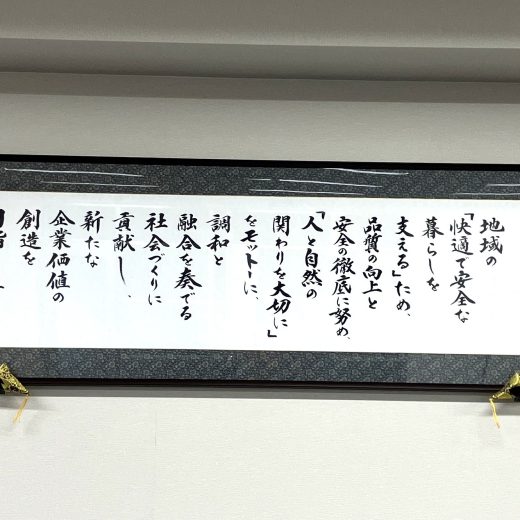 地域の
「快適で安全な
暮らしを
支える」ため、
品質の向上と
安全の徹底に努め、
「人と自然の
関わりを大切に」
をモットーに、
調和と
融合を奏でる
社会づくりに
貢献し、
新たな
企業価値の
創造を